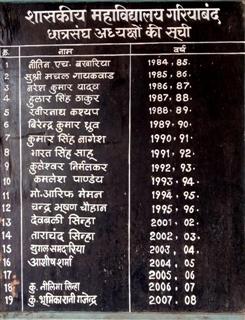 शासकीय महाविद्यालय गरियाबंद
छात्रसंघ अध्यक्षों की सूची
क्र. नाम वर्ष
1 नीतिन एच. बखारिया 1984. 85.
2 सुश्री मचल गायकवाड 1985. 86.
3 नरेश कुमार यादव 1986. 87
4 हुलार सिंह ठाकुर 1987. 88.
5 रवीरनाथ कश्यप 1988. 89
6 बिरेन्द्र कुमार ध्रुव 1989. 90.
7 कुमार सिंह नागेश 1990. 91.
8 भारत सिंह साहू 1991. 92.
9 कुलेश्वर निर्मलकर 1992. 93.
10 कमलेश पाण्डेय 1993. 94.
11 मो. आरिफ मेमन 1994. 95.
12 चन्द्र भूषण चौहान 1995. 96.
13 देवबली सिन्हा 2001. 02.
14 ताराचंद सिन्हा 2002. 03.
15 युगल 2003. 04.
16 आशीष शर्मा 2004. 05
17 2005. 06
18 कु. नीलिमा सिन्हा 2006. 07
19 कु. भूमिका रानी गजेन्द्र 2007. 08